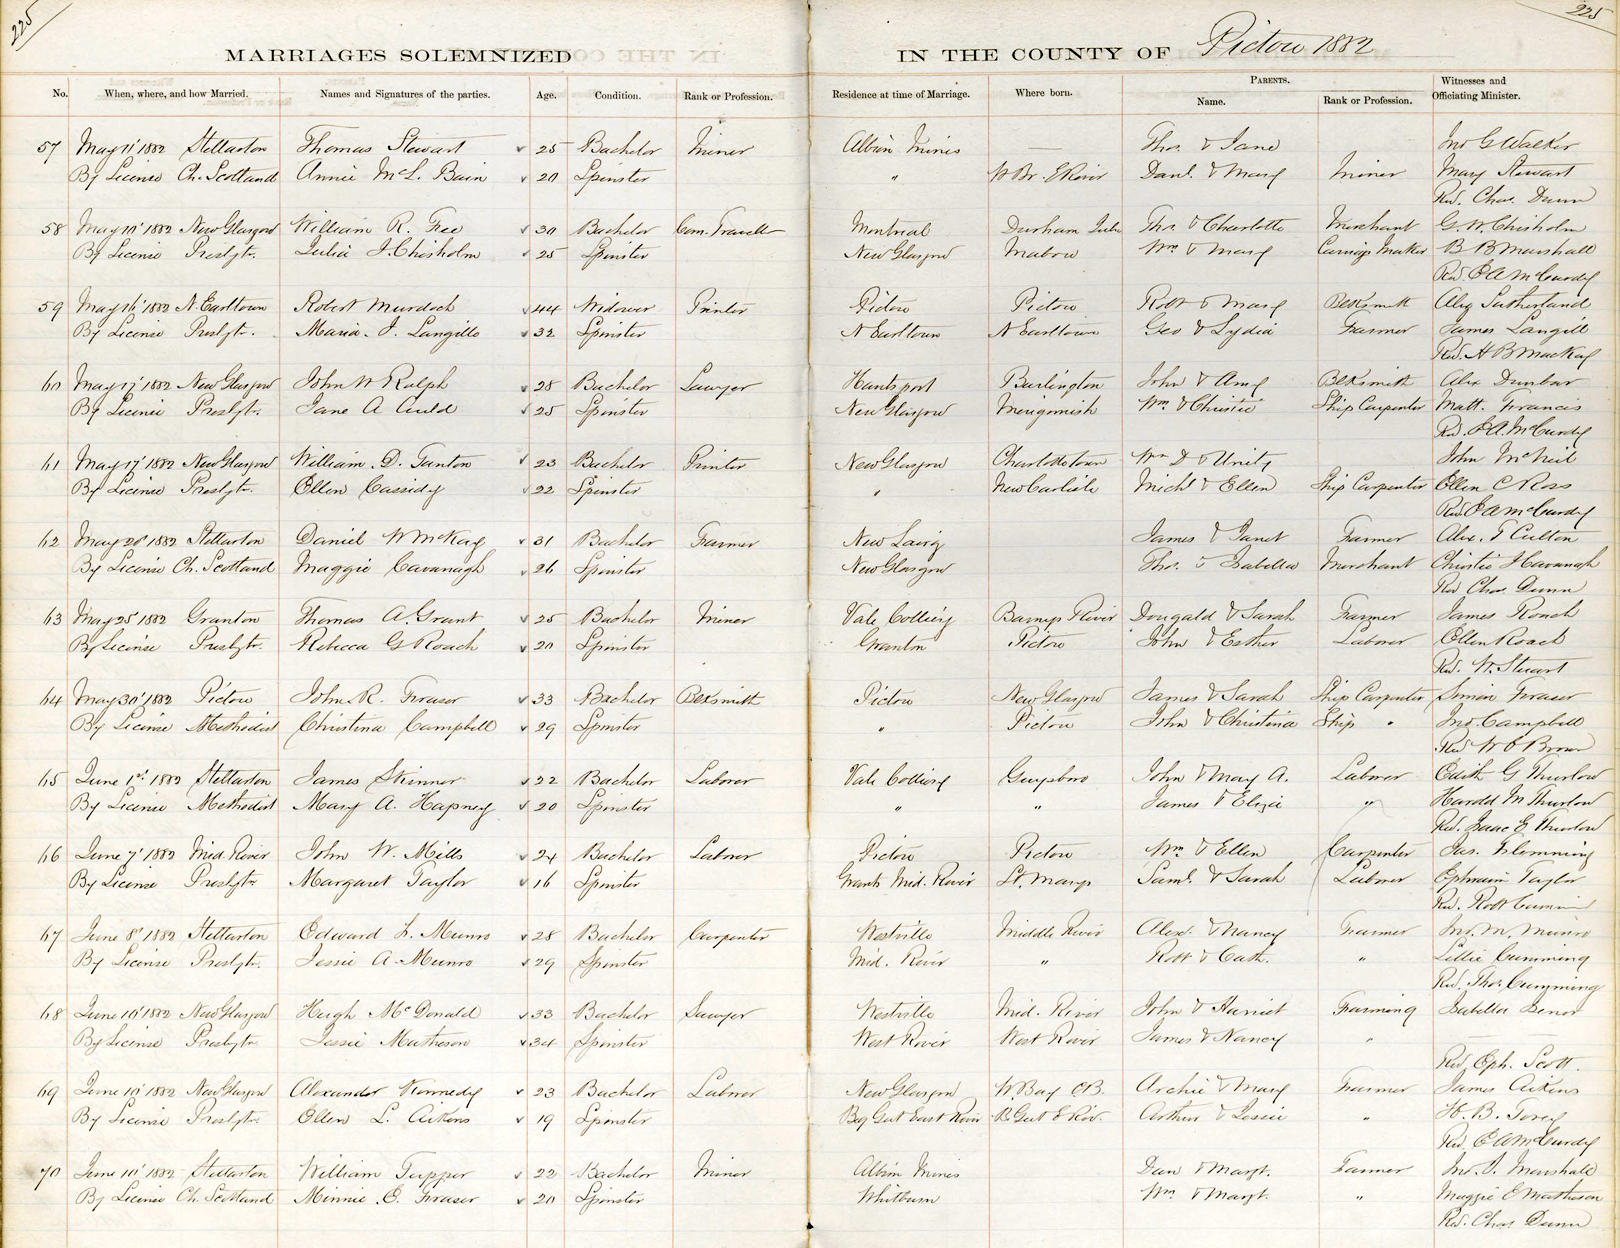 225
225
MARRIAGES SOLEMNIZED IN THE COUNTY OF Pictou 1882
No. When, where, and how Married. Names and Signatures of the parties. Age. Condition. Rank or Profession. Residence at time of Marriage. Where born. PARENTS. Name. Rank or Profession. Witnesses and Officiating Minister.
57 May 11' 1882 Stellarton Thomas Stewart 25 Bachelor Miner Albion Mines — Thos. & Jane Jno G Walker
By License Ch. Scotland Annie McL. Bain 20 Spinster " W Br. E River Danl. & Mary Miner Mary Stewart
Rev. Chas. Dunn
58 May 10' 1882 New Glasgow William R. Free 30 Bachelor Com. Travell Montreal Durham Thos & Charlotte Merchant G. W. Chisholm
By License Presbyt. Julia J. Chisholm 25 Spinster New Glasgow Mabou Wm & Mary Carriage Maker B B Marshall
Rev. E A McCurdy
59 May 16' 1882 N. Earltown Robert Murdoch 44 Widower Printer Pictou Pictou Robt & Mary Blksmith Alex Sutherland
By License Presbyt. Maria J. Langille 32 Spinster N Earltown N Earltown Geo & Lydia Farmer James Langill
Rev. H B MacKay
60 May 17' 1882 New Glasgow John W Ralph 28 Bachelor Sawyer Hantsport Burlington John & Amy Blksmith Alex Dunbar
By License Presbyt. Jane A Auld 25 Spinster New Glasgow Merigomish Wm & Christie Ship Carpenter Matt. Francis
Rev. E A. McCurdy
61 May 17' 1882 New Glasgow William D. Tanton 23 Bachelor Printer New Glasgow Charlottetown Wm D & Unity John McNeil
By License Presbyt. Ellen Cassidy 22 Spinster " New Carlisle Michl & Ellen Ship Carpenter Ellen C Ross
Rev. E A McCurdy
62 May 20' 1882 Stellarton Daniel W McKay 31 Bachelor Farmer New Lairg James & Janet Farmer Alex. T Culton
By License Ch. Scotland Maggie Cavanagh 26 Spinster New Glasgow Thos. & Isabella Merchant Christie Kavanagh
Rev Chas. Dunn
63 May 25' 1882 Granton Thomas A. Grant 25 Bachelor Miner Vale Colliery Barneys River Dougald & Sarah Farmer James Roach
By License Presbytr. Rebecca G Roach 20 Spinster Granton Pictou John & Esther Laborer Ellen Roach
Rev. W. Stewart
64 May 30' 1882 Pictou John R. Fraser 33 Bachelor Blksmith Pictou New Glasgow James & Sarah Ship Carpenter Simon Fraser
By License Methodist Christina Campbell 29 Spinster " Pictou John & Christina Ship " Jno. Campbell
Rev W C Brown
65 June 1st 1882 Stellarton James Skinner 22 Bachelor Laborer Vale Colliery Guysboro John & Mary A. Laborer Edith G Thurlow
By License Methodist Mary A. Hapney 20 Spinster " " James & Eliza " Harold M Thurlow
Rev. Isaac E Thurlow
66 June 7' 1882 Mid. River John W. Mills 24 Bachelor Laborer Pictou Pictou Wm & Ellen Carpenter Jas. Flemming
By License Presbytr Margaret Taylor 16 Spinster Grants Mid. River St. Marys Saml. & Sarah Laborer Ephraim Taylor
Rev. Robt Cumming
67 June 8' 1882 Stellarton Edward L. Munro 28 Bachelor Carpenter Westville Middle River Alexr. & Nancy Farmer Jno. M. Munro
By License Presbytr. Jessie A. Munro 29 Spinster Mid. River " Robt & Cath. " Lillie Cumming
Rev. Thos. Cumming
68 June 10' 1882 New Glasgow Hugh McDonald 33 Bachelor Sawyer Westville Mid. River John & Harriet Farming Isabella
By License Presbytr. Jessie Matheson 34 Spinster West River West River James & Nancy "
Rev. Eph. Scott.
69 June 10' 1882 New Glasgow Alexander Kennedy 23 Bachelor Laborer New Glasgow W. Bay C.B. Archie & Mary Farmer James Aikins
By License Presbytr. Ellen L. Aikins 19 Spinster Big Gut East River B. Gut E Riv. Arthur & Jessie " H. B.
Rev. E A McCurdy
70 June 10' 1882 Stellarton William Tupper 22 Bachelor Miner Albion Mines Dan & Margt. Farmer Jno. J. Marshall
By License Ch. Scotland Minnie E. Fraser 20 Spinster Whitburn Wm & Margt. " Maggie E Matheson
Rev. Chas Dunn